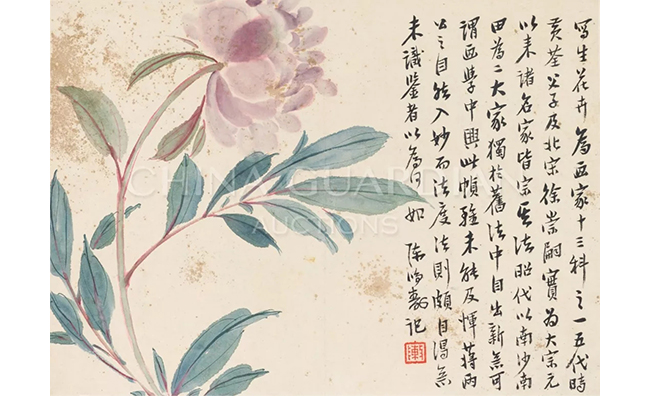 寫生花卉為画家十三科之一五代時
黄荃父子及北宋徐崇嗣實為大宗元
以来諸名家皆宗其法昭代以南沙南
田為二大家獨於舊法中自出新意可
謂画學中興此幀雖未能及惲蔣兩
公之自然入妙而法度法則頗自
未識鑒者以為何如 陳鴻壽記
CHINA GUARDIAN
AUCTIONS